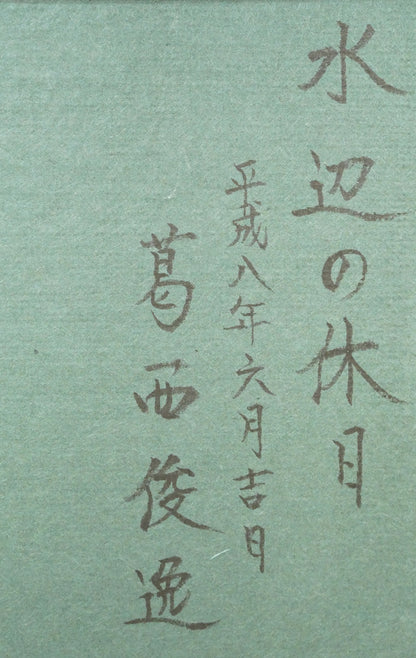 水辺の休日
平成八年六月吉日
葛西俊逸